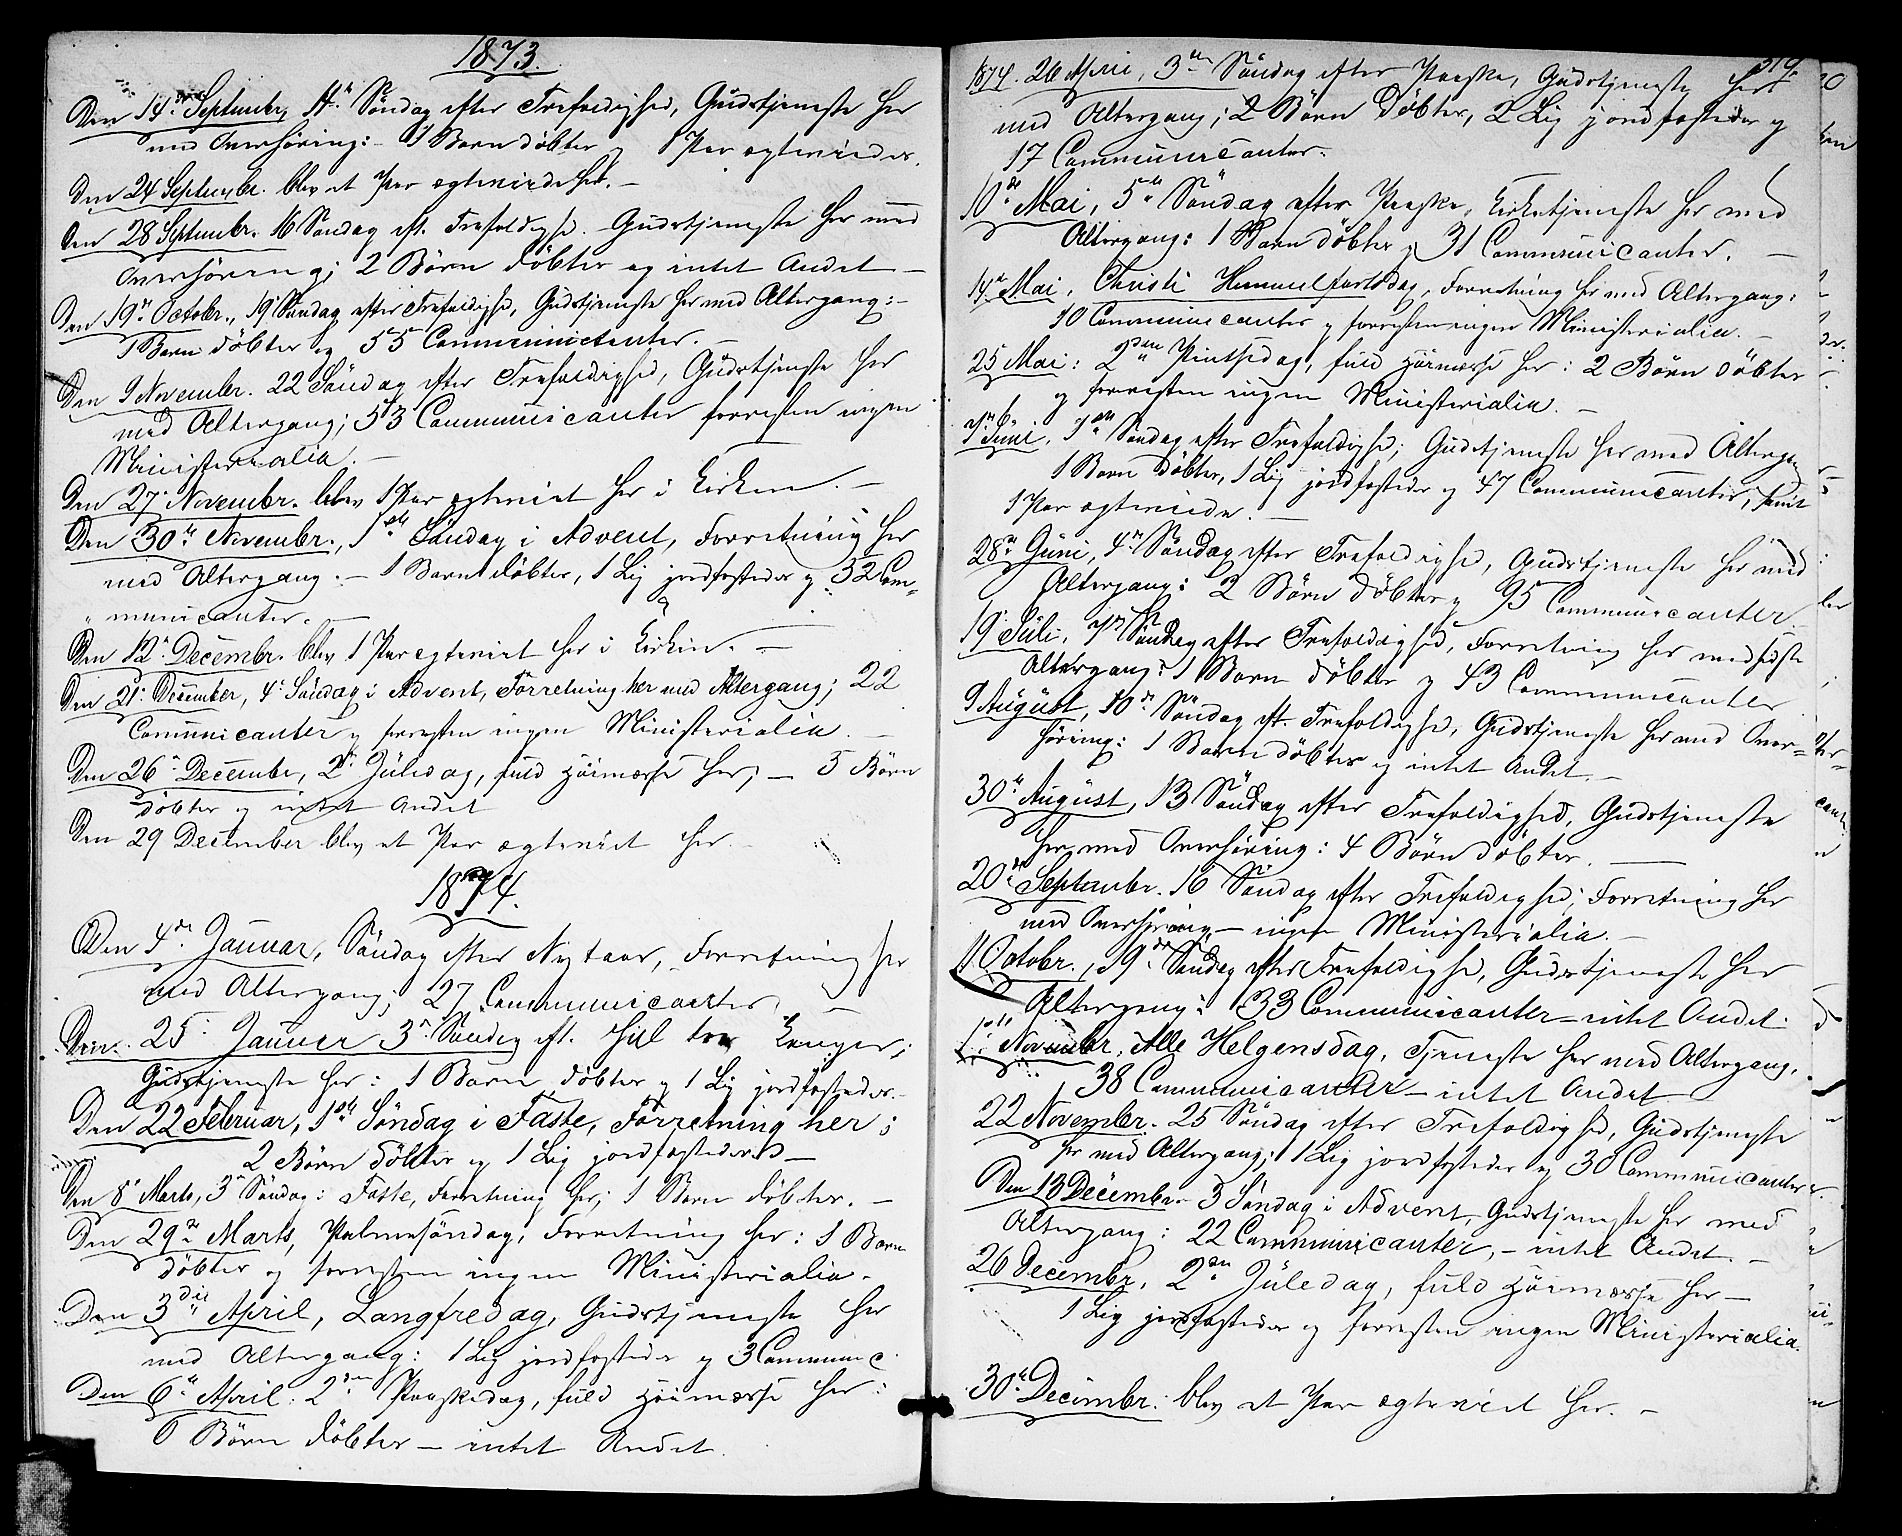 1873.
Den 14de Septembr, 14de Søndag efter Trefoldighed, Gudstjeneste her
med Overhøring: - 1 Barn døbtes og 1 Par egteviedes.
Den 24 Septembr. blev et Par egteviede her. -
Den 28 Septembr. 16 Søndag eft. Trefoldighd. Gudstjeneste her med
Overhøring; 2 Børn døbtes og intet Andet -
Den 19de Octobr., 19de Søndag efter Trefoldighd, Gudstjeneste her med Altergang: -
1 Barn døbtes og 55 Communicanter. -
Den 9 Novembr. 22 Søndag efter Trefoldighed, Gudstjeneste her
med Altergang; 53 Communicanter forresten ingen
Ministerialia. -
Den 27de Novembr. blev 1 Par egteviet her i Kirken. -
Den 30te Novembr., 1ste Søndag i Advent, Forretning her
med Altergang. - 1 Barn døbtes, 1 Lig jordfæstedes og 32 Com-
municanter. -
Den 12te Decembr. blev 1 Par egteviet her i Kirken. -
Den 21de December, 4de Søndag i Advent, Forretning her med Altergang; 22
Communicanter og forresten ingen Ministerialia. -
Den 26de Decembr, 2den Juledag, fuld Høimæsse her; - 5 Børn
døbtes og intet Andet
Den 29 December blev et Par egteviet her. -
1874.
Den 4de Januar, Søndag efter Nytaar, Forretning her
med Altergang; 27 Communicanter. -
Den 25de Januar 3de Søndag eft. Hell. tre Konger;
Gudstjeneste her: 1 Barn døbtes og 1 Lig jordfæstedes. -
Den 22 Februar, 1ste Søndag i Faste, Forretning her;
2 Børn døbtes og 1 Lig jordfæstedes -
Den 8de Marts, 3de Søndag i Faste, Forretning her; 1 Barn døbtes. -
Den 29de Marts, Palmesøndag, Forretning her: 1 Barn
døbtes og forresten ingen Ministerialia. -
Den 3die April, Langfredag, Gudstjeneste her
med Altergang: 1 Lig jordfæstedes og 3 Communic.
Den 6te April. 2den Paaskedag, fuld Høimæsse her:
6 Børn døbtes - intet Andet.
319.
1874. 26 April, 3die Søndag efter Paaske, Gudstjeneste her
med Altergang; 2 Børn døbtes, 2 Lig jordfæstedes og
17 Communicanter.
10de Mai, 5te Søndag efter Paaske, Kirketjeneste her med
Altergang: 1 Barn døbtes og 31 Communicanter. -
14de Mai, Christi Himmelfartsdag, Forretning her med Altergang:
10 Communicanter og forresten ingen Ministerialia. -
25 Mai: 2den Pintsedag, fuld Høimæsse her: 2 Børn døbtes
og forresten ingen Ministerialia. -
7de Juni, 1ste Søndag efter Trefoldighd; Gudstjeneste her med Altergang
1 Barn døbtes, 1 Lig jordfæstedes og 47 Communicanter, samt
1 Par egteviede. -
28de Juni, 4de Søndag efter Trefoldighed, Gudstjeneste her med
Altergang: 2 Børn døbtes og 95 Communicanter.
19de Juli, 7de Søndag efter Trefoldighed, Forretning her med sidste
Altergang: 1 Barn døbtes og 43 Communicanter
9 August, 10de Søndag eft. Trefoldighd, Gudstjeneste her med Over-
høring: 1 Barn døbtes og intet Andet. -
30te August, 13 Søndag efter Trefoldighed, Gudstjeneste
her med Overhøring: 4 Børn døbtes. -
20de Septembr. 16 Søndag efter Trefoldighed; Forretning her
med Overhøring - ingen Ministerialia. -
11 Octobr., 19de Søndag efter Trefoldighd, Gudstjeneste her
Altergang: 33 Communicanter - intet Andet.
1ste Novembr, Alle Helgensdag, Tjeneste her med Altergang,
38 Communicanter - intet Andet
22 Novembr. 25 Søndag efter Trefoldighed, Gudstjeneste
her med Altergang; 1 Lig jordfæstedes og 30 Communicanter.
Den 13 Decembr. 3 Søndag i Advent, Gudstjeneste her med
Altergang: 22 Communicanter, - intet Andet. -
26 Decembr, 2den Juledag, fuld Høimæsse her -
1 Lig jordfæstedes og forresten ingen Ministerialia.
30te Decembr. blev et Par egteviet her. -